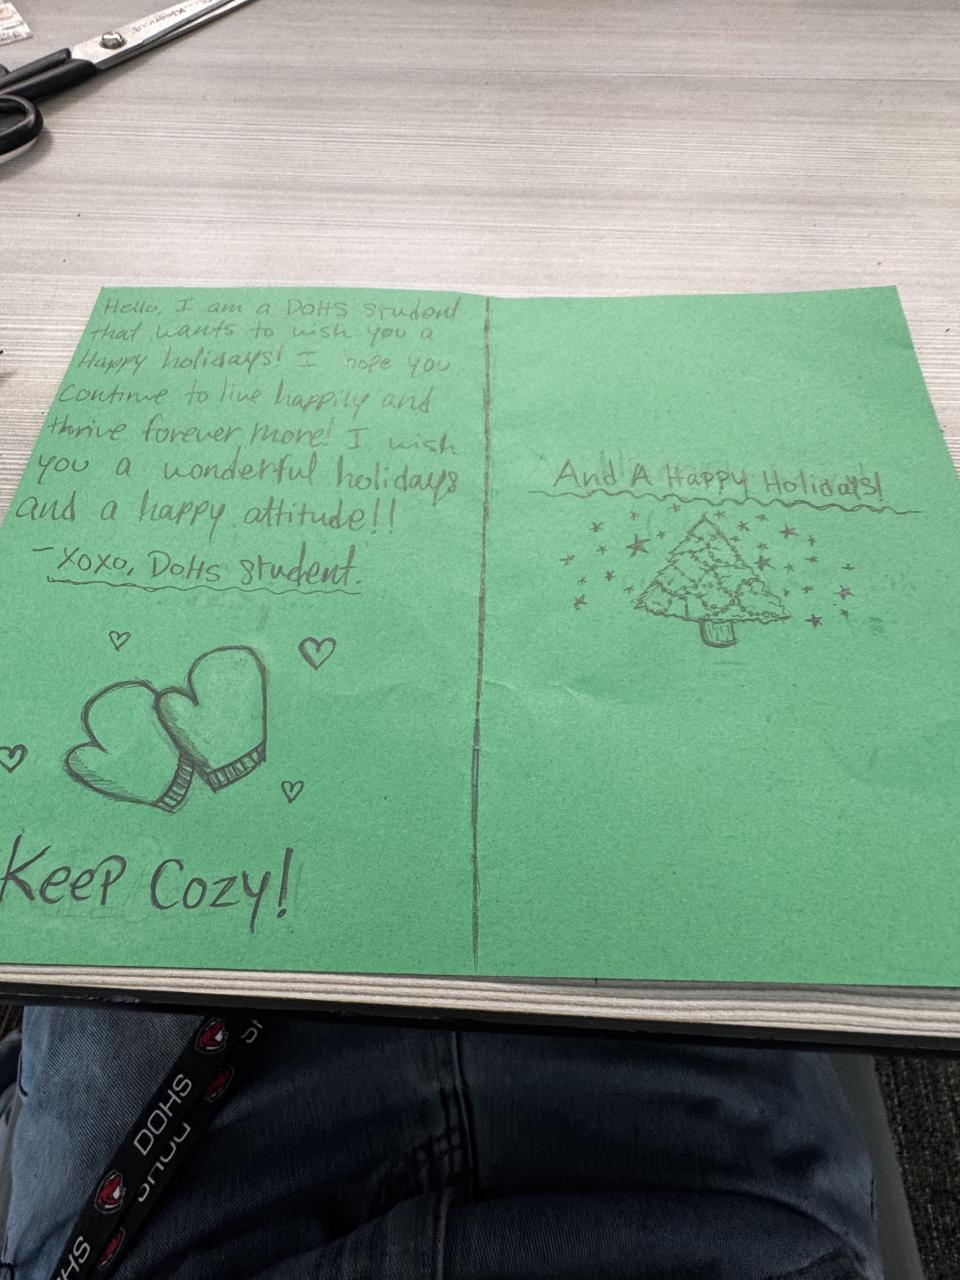 Hello, I am a DOHS student
that wants to wish you a
Happy holidays! I hope you
continue to live happily and
thrive forever more! I wish
you a wonderful holidays
and a happy attitude!!
-xoxo, DOHS student.
Keep Cozy!
And A Happy Holidays!
DOHS